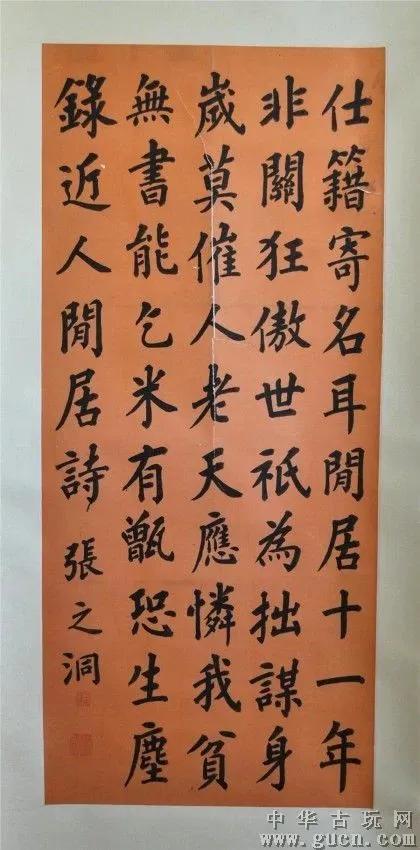 仕籍寄名耳閒居十一年
非關狂傲世祇為拙謀身
歲莫催人老天應憐我貧
無書能乞米有甑恐生塵
錄近人閒居詩 張之洞
中华古玩网
www.gucn.com